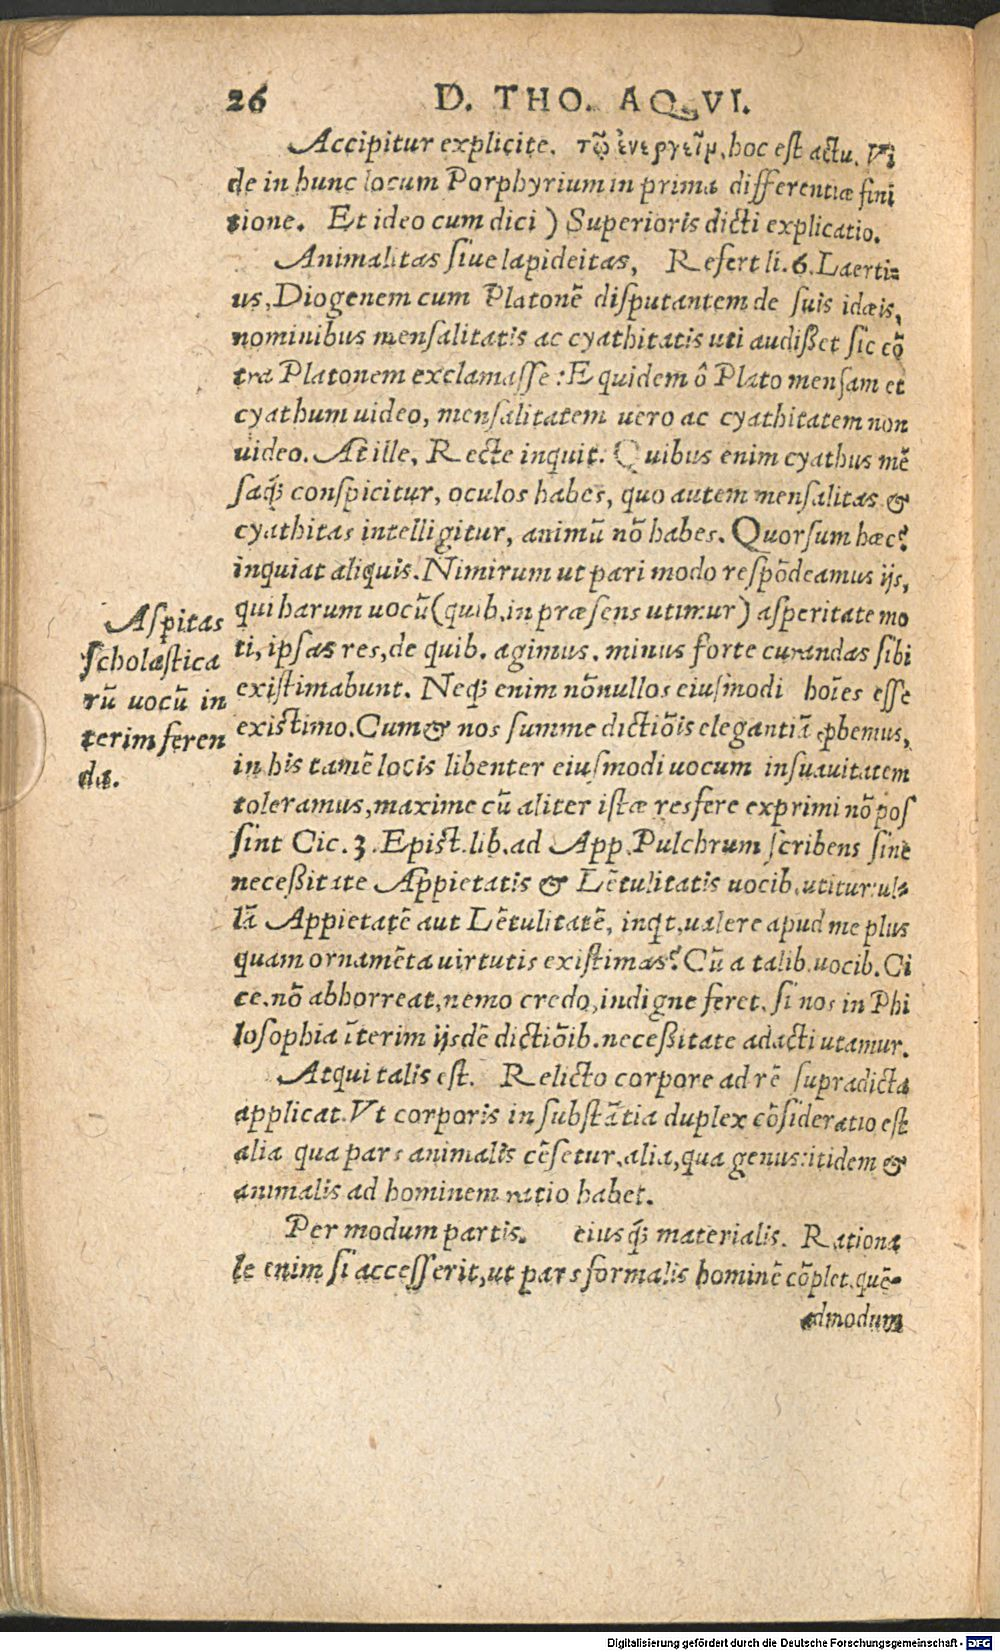 26 D. THO. AQVI.
Accipitur explicite. τῷ ἐνεργεῖν, hoc est actu. Vi
de in hunc locum Porphyrium in prima differentiæ fini
tione. Et ideo cum dici ) Superioris dicti explicatio.
Animalitas siue lapideitas, Refert li. 6. Laerti-
us, Diogenem cum Platonē disputantem de suis idæis,
nominibus mensalitatis ac cyathitatis uti audißet sic cō
tra Platonem exclamasse : Equidem ô Plato mensam et
cyathum uideo, mensalitatem uero ac cyathitatem non
uideo. At ille, Recte inquit. Quibus enim cyathus mē
saq́; conspicitur, oculos habes, quo autem mensalitas &
cyathitas intelligitur, animū nō habes. Quorsum hæc?
inquiat aliquis. Nimirum ut pari modo respōdeamus ijs,
qui harum uocū (quib. in præsens utimur) asperitate mo
ti, ipsas res, de quib. agimus. minus forte curandas sibi
existimabunt. Neq́; enim nōnullos eiusmodi hoīes esse
existimo. Cum & nos summe dictiōis elegantiā ꝓbemus,
in his tamē locis libenter eiusmodi uocum insuauitatem
toleramus, maxime cū aliter istæ res fere exprimi nō pos
sint Cic. 3. Epist. lib. ad App. Pulchrum scribens sine
neceßitate Appietatis & Lētulitatis uocib. utitur: ul-
lā Appietatē aut Lētulitatē, inqt, ualere apud me plus
quam ornamēta uirtutis existimas? Cū a talib. uocib. Ci
ce. nō abhorreat, nemo credo, indigne feret. si nos in Phi
losophia īterim ijsdē dictiōib. neceßitate adacti utamur.
Aspitas
scholastica
rū uocū in
terim feren
da.
Atqui talis est. Relicto corpore ad rē supradicta
applicat. Vt corporis in substātia duplex cōsideratio est
alia qua pars animalis cēsetur, alia, qua genus: itidem &
animalis ad hominem ratio habet.
Per modum partis. eiusq́; materialis. Rationa
le enim si accesserit, ut pars formalis hominē cōplet. quē-
admodum
Digitalisierung gefördert durch die Deutsche Forschungsgemeinschaft - DFG